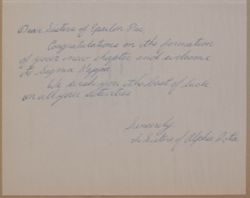 Dear Sisters of Epsilon Rho,
Congratulations on the formation
of your new chapter and welcome
to Sigma Kappa
We wish you the best of luck
on all your activities
Sincerely,
Sisters of Alpha Iota